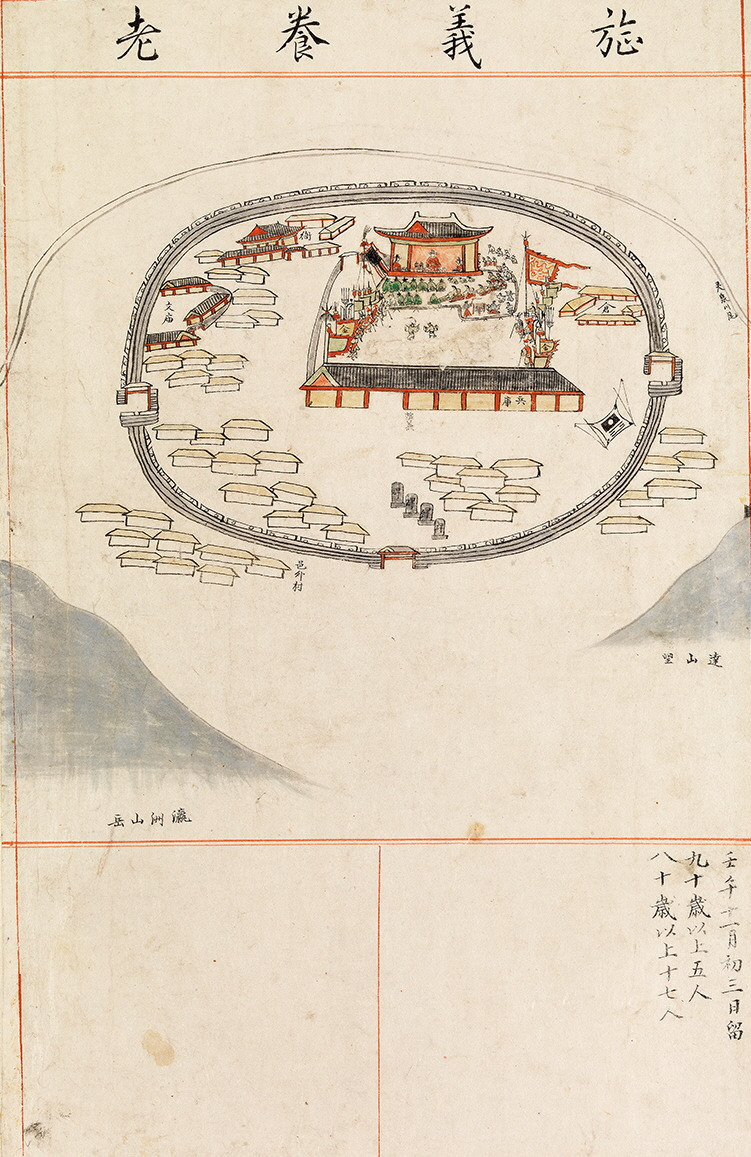 旌義養老
衙
文廟
倉
兵庫
邑外村
達山望
瀛洲山岳
壬午十一月初三日留
九十歲以上五人
八十歲以上十七人